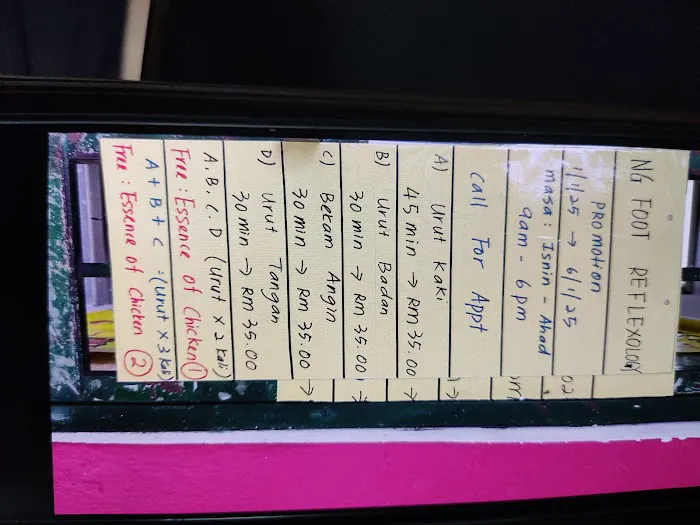 NG FOOT REFLEXOLOGY
PROMOTION
1/1/25 → 6/1/25
masa : Isnin - Ahad
9am - 6pm
Call For Appt
A) Urut Kaki
45 min → RM 35.00
B) Urut Badan
30 min → RM 35.00
C) Bekam Angin
30 min → RM 35.00
D) Urut Tangan
30 min → RM 35.00
A. B. C. D (Urut x 2 kali)
Free : Essence of Chicken 1
A + B + C = (Urut x 3 Kali)
Free : Essence of Chicken 2